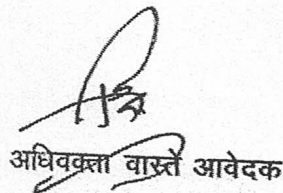 अधिवक्ता वास्ते आवेदक